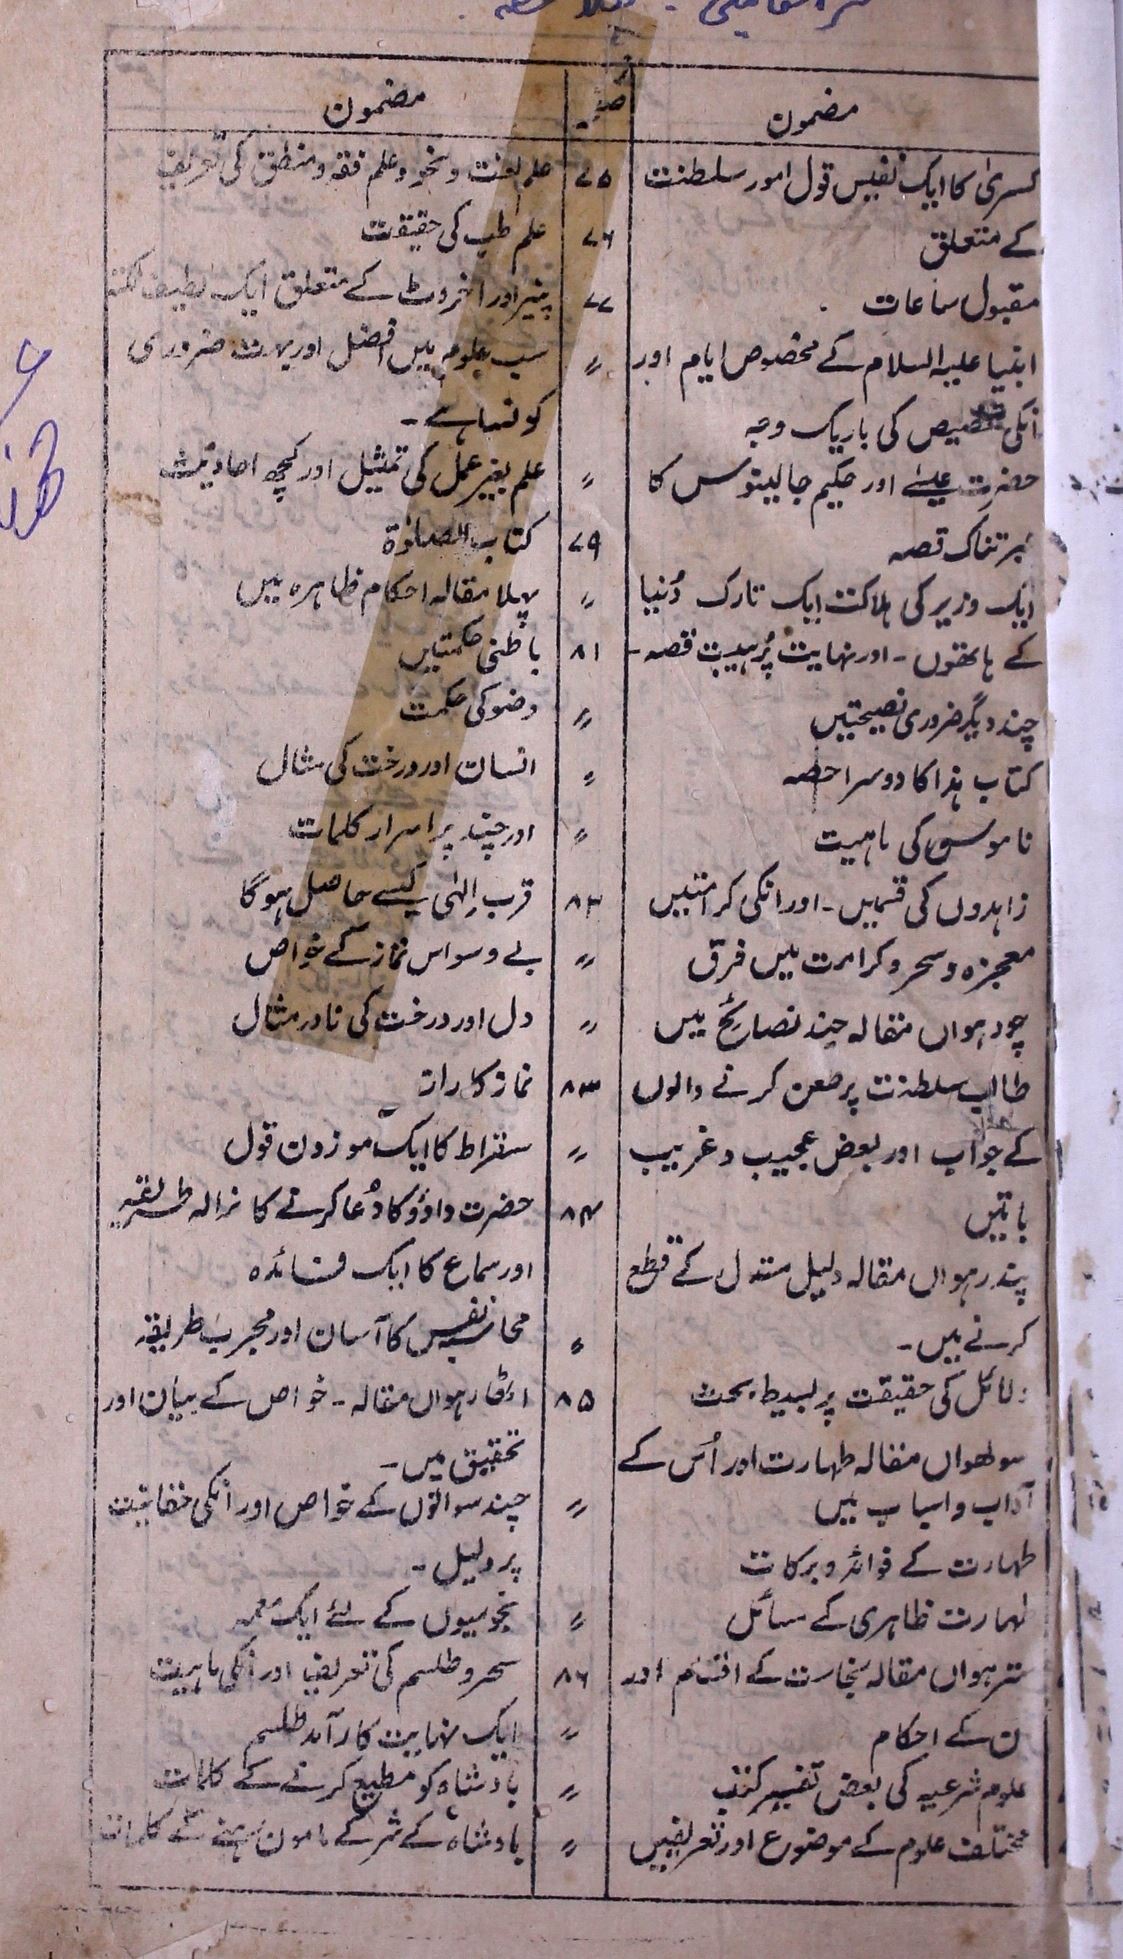 مضمون
کسریٰ کا ایک نفیس قول امور سلطنت
کے متعلق
مقبول ساعات
انبیا علیہ السلام کے مخصوص ایام اور
انکی تخصیص کی باریک وجہ
حضرت عیسےٰ اور حکیم جالینوس کا
عبرتناک قصہ
ایک وزیر کی ہلاکت ایک تارک دُنیا
کے ہاتھوں۔ اور نہایت پُر ہیبت قصہ۔
چند دیگر ضروری نصیحتیں
کتاب ہذا کا دوسرا حصہ
ناموس کی ماہیت
زاہدوں کی قسمیں۔ اور انکی کرامتیں
معجزہ و سحر و کرامت میں فرق
چودہواں مقالہ چند نصائح میں
طالب سلطنت پر طعن کرنے والوں
کے جواب اور بعض عجیب و غریب
باتیں
پندرہواں مقالہ دلیل مستدل کے قطع
کرنے میں۔
دلائل کی حقیقت پر بسیط بحث
سولھواں مقالہ طہارت اور اُس کے
آداب و اسباب میں
طہارت کے فوائد و برکات
طہارت ظاہری کے مسائل
سترہواں مقالہ نجاست کے اقسام اور
ن کے احکام
علوم شرعیہ کی بعض تفسیر کتب
مختلف علوم کے موضوع اور تعریفیں
صفحہ
مضمون
۷۵ علم لغت و نحو و علم فقہ و منطق کی تعریف
۷۶ علم طب کی حقیقت
۷۷ پنیر اور اخروٹ کے متعلق ایک لطیف نکتہ
〃 سب علوم میں افضل اور بہت ضروری
کونسا ہے۔
〃 علم بغیر عمل کی تمثیل اور کچھ احادیث
۷۹ کتاب الصلوٰۃ
〃 پہلا مقالہ احکام ظاہرہ میں
۸۱ باطنی حکمتیں
〃 وضو کی حکمت
〃 انسان اور درخت کی مثال
〃 اور چند پر اسرار کلمات
۸۲ قرب الٰہی کیسے حاصل ہوگا
〃 بے وسواس نماز کے خواص
〃 دل اور درخت کی نادر مثال
۸۳ نماز کا راز
〃 سقراط کا ایک موزون قول
۸۴ حضرت داؤد کا دُعا کرنے کا نرالہ طریقہ
اور سماع کا ایک فائدہ
〃 محاسبہ نفس کا آسان اور مجرب طریقہ
۸۵ اٹھارہواں مقالہ۔ خواص کے بیان اور
تحقیق میں۔
〃 چند سوالوں کے خواص اور انکی حقانیت
پر دلیل۔
〃 نجومیوں کے لئے ایک معمہ
۸۶ سحر و طلسم کی تعریف اور انکی ماہیت
〃 ایک نہایت کار آمد طلسم
〃 بادشاہ کو مطیع کرنے کے کلمات
〃 بادشاہ کے شر کے مامون رہنے کے کلمات